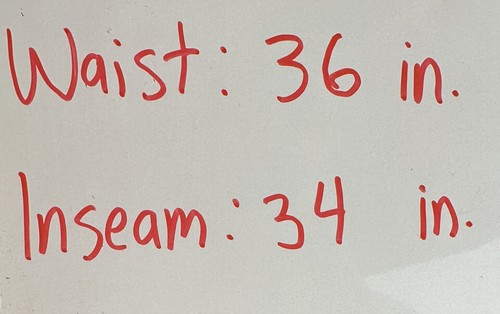 Waist: 36 in.
Inseam: 34 in.